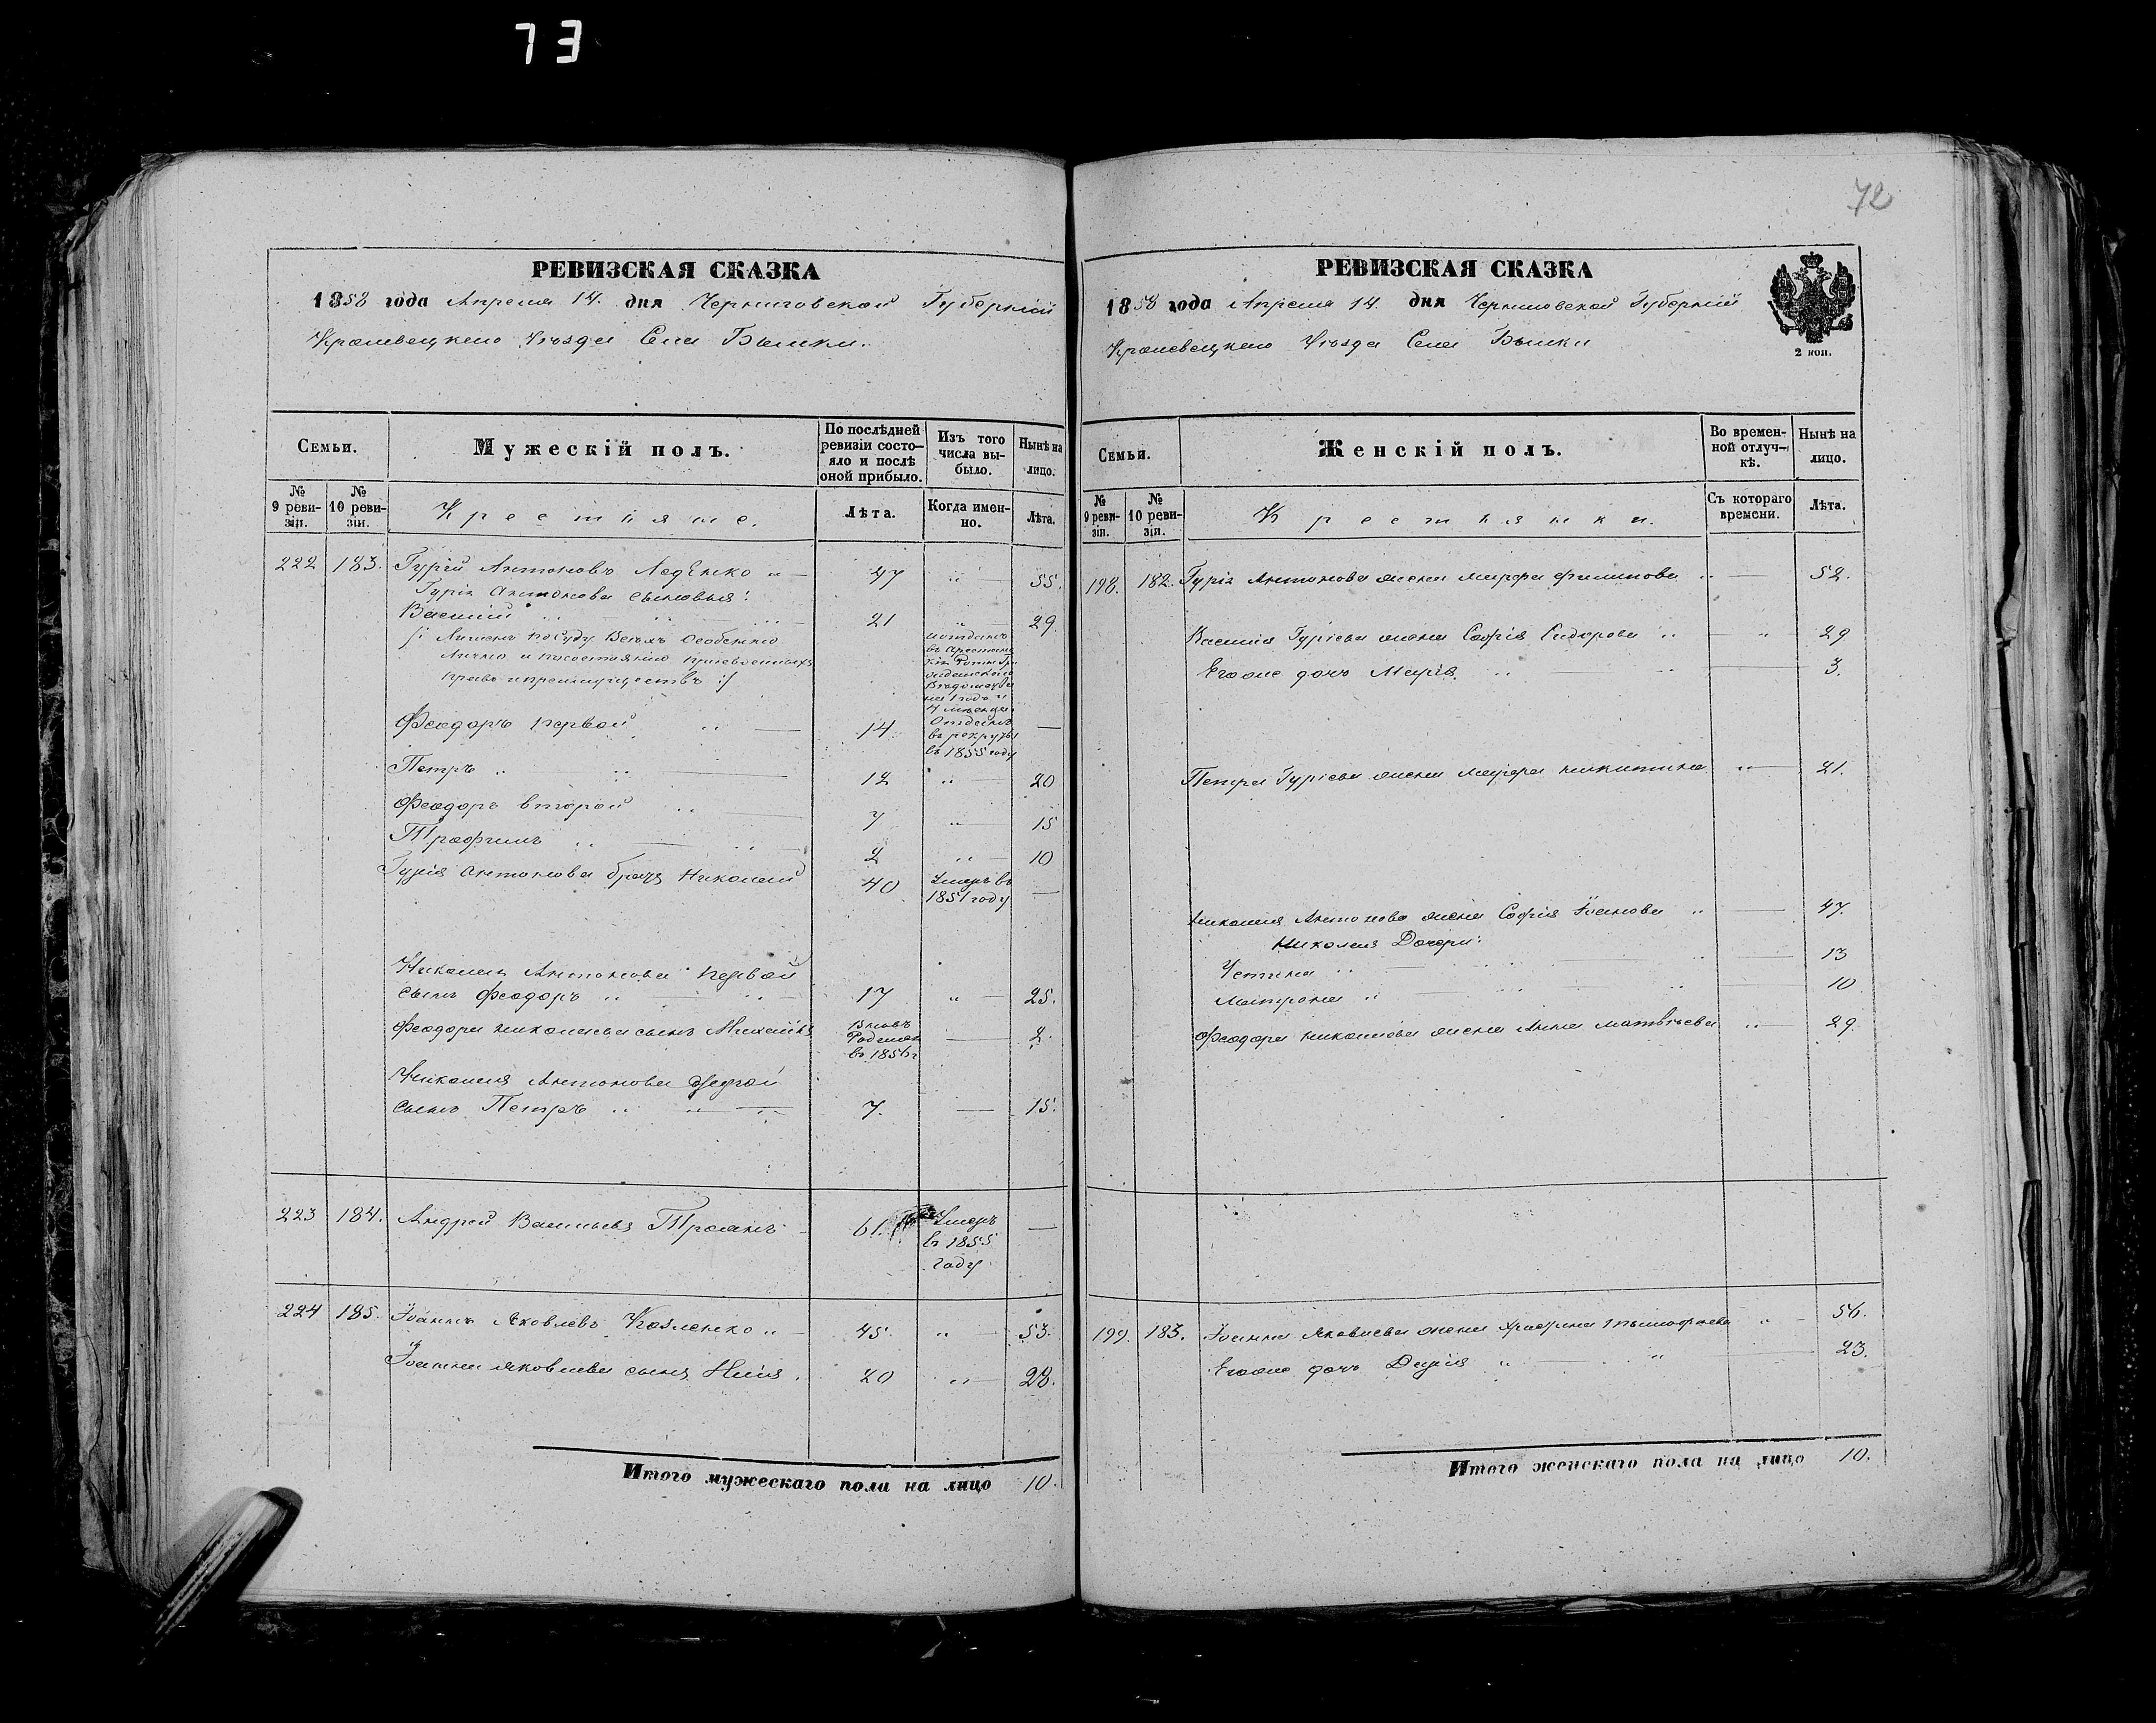 73
72
РЕВИЗСКАЯ СКАЗКА
1858 года Апреля 14. дня Черниговской Губерніи
Кролевецкаго Уѣзда Села Быики.
Семьи.
Мужескій полъ.
По послѣдней ревизіи состо-
яло и послѣ
оной прибыло.
Изъ того
числа вы-
было.
Нынѣ на
лицо.
№
9 реви-
зіи.
№
10 реви-
зіи.
Крестьяне.
Лѣта.
Когда имен-
но.
Лѣта.
222 183. Гурій Антоновъ 47 „ 55.
Гурія Антонова сыновья:
Василій „ 21 „ 29
/: Лишенъ по Суду Всѣхъ Особенно
Лично и по состоянію присвоенныхъ
правъ и преимуществъ :/
Феодоръ первой „ 14 Отданъ
въ рекруты
въ 1855 году —
Петръ „ 12 „ 20
Феодоръ второй „ 7 „ 15
Трофимъ „ 2 „ 10
Гурія Антонова братъ Николай 40 Умеръ въ
1851 году —
Николая Антонова первой
сынъ Феодоръ „ 17 „ 25.
Феодора Николаева сынъ Михаилъ Вновь
Рожден
въ 1856 г — 2.
Николая Антонова другой
сынъ Петръ „ 7. — 15.
223 184. Андрей Васильевъ Троянъ 61. Умеръ
въ 1855
году —
224 185. Іоаннъ Яковлевъ Козленко „ 45. „ 53.
Іоанна Яковлева сынъ Илія. 20 „ 28.
Итого мужескаго пола на лицо 10.
РЕВИЗСКАЯ СКАЗКА
1858 года Апреля 14. дня Черниговской Губерніи
Кролевецкаго Уѣзда Села Быики
2 коп.
Семьи.
Женскій полъ.
Во времен-
ной отлуч-
кѣ.
Нынѣ на
лицо.
№
9 реви-
зіи.
№
10 реви-
зіи.
Крестьянки.
Съ котораго
времени.
Лѣта.
198. 182. Гурія Антонова жена Марфа Филипова „ 52.
Василія Гуріева жена Софія Сидорова „ 29
Егоже дочь Марія. „ 3.
Петра Гуріева жена Марфа Никитина „ 21.
Николая Антонова жена Софія Іванова „ 47.
Николая Дочери:
Устина „ 13
Матрона „ 10
Феодора Николаева жена Анна Матвѣева „ 29
199. 183. Іоанна Яковлева жена „ 56.
Егоже дочь Дарія „ 23.
Итого женскаго пола на лицо 10.